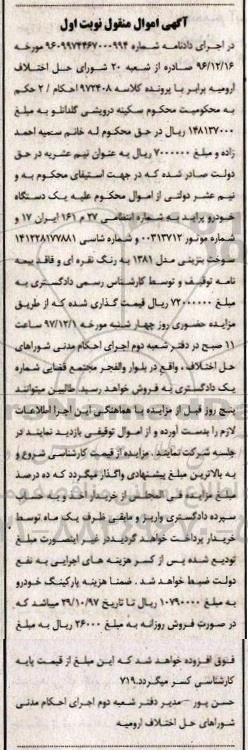 آگهی اموال منقول نوبت اول
در اجرای دادنامه شماره ۹۶۰۹۹۷۴۴۶۷۰۰۰۹۹۴ مورخه
۹۶/۱۲/۱۶ صادره از شعبه ۲۰ شورای حل اختلاف
ارومیه برابر با پرونده کلاسه ۹۷۲۴۰۸ احکام / ۲ حکم
به محکومیت محکوم سکینه درویشی گلدانلو به مبلغ
۱۴۸۱۳۷۰۰۰ ریال در حق محکوم له خانم سمیه احمد
زاده و مبلغ ۷۰۰۰۰۰۰ ریال به عنوان نیم عشریه در حق
دولت صادر شده که در جهت استیفای محکوم به و
نیم عشر دولتی از اموال محکوم علیه یک دستگاه
خودرو پراید به شماره انتظامی ۲۷ م ۱۶۱ ایران ۱۷ و
شماره موتور ۰۰۳۱۳۷۱۲ و شماره شاسی ۱۴۱۲۲۸۱۷۷۸۸۱
سوخت بنزینی مدل ۱۳۸۱ به رنگ نقره ای و فاقد بیمه
نامه توقیف و توسط کارشناس رسمی دادگستری به
مبلغ ۷۲۰۰۰۰۰۰ ریال قیمت گذاری شده که از طریق
مزایده حضوری روز چهار شنبه مورخه ۹۷/۱۲/۱ ساعت
۱۱ صبح در دفتر شعبه دوم اجرای احکام مدنی شوراهای
حل اختلاف ، واقع در بلوار والفجر مجتمع قضایی شماره
یک دادگستری به فروش خواهد رسید طالبین میتوانند
پنج روز قبل از مزایده با هماهنگی این اجرا اطلاعات
لازم را بدست آورده و از اموال توقیفی بازدید نمایند در
جلسه شرکت نمایند . مزایده از قیمت کارشناسی شروع و
به بالاترین مبلغ پیشنهادی واگذار میگردد که ده درصد
مبلغ مزایده فی المجلس از خریدار اخذ و به
سپرده دادگستری واریز و مابقی ظرف یک ماه توسط
خریدار پرداخت خواهد گردید در غیر اینصورت مبلغ
تودیع شده پس از کسر هزینه های اجرایی به نفع
دولت ضبط خواهد شد . ضمنا هزینه پارکینگ خودرو
به مبلغ ۱۰۷۹۰۰۰۰ ریال تا تاریخ ۲۹/۱۰/۹۷ میباشد که
در صورت فروش روزانه به مبلغ ۲۶۰۰۰ ریال به مبلغ
فوق افزوده خواهد شد که این مبلغ از قیمت پایه
کارشناسی کسر میگردد.۷۱۹
حسن پور - مدیر دفتر شعبه دوم اجرای احکام مدنی
شوراهای حل اختلاف ارومیه